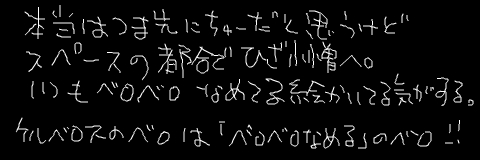 本当はつま先にちゅーだと思うけど
スペースの都合でひざ小僧へ。
いつもベロベロなめてる絵かいてる気がする。
ケルベロスのベロは「ベロベロなめる」のベロ!!